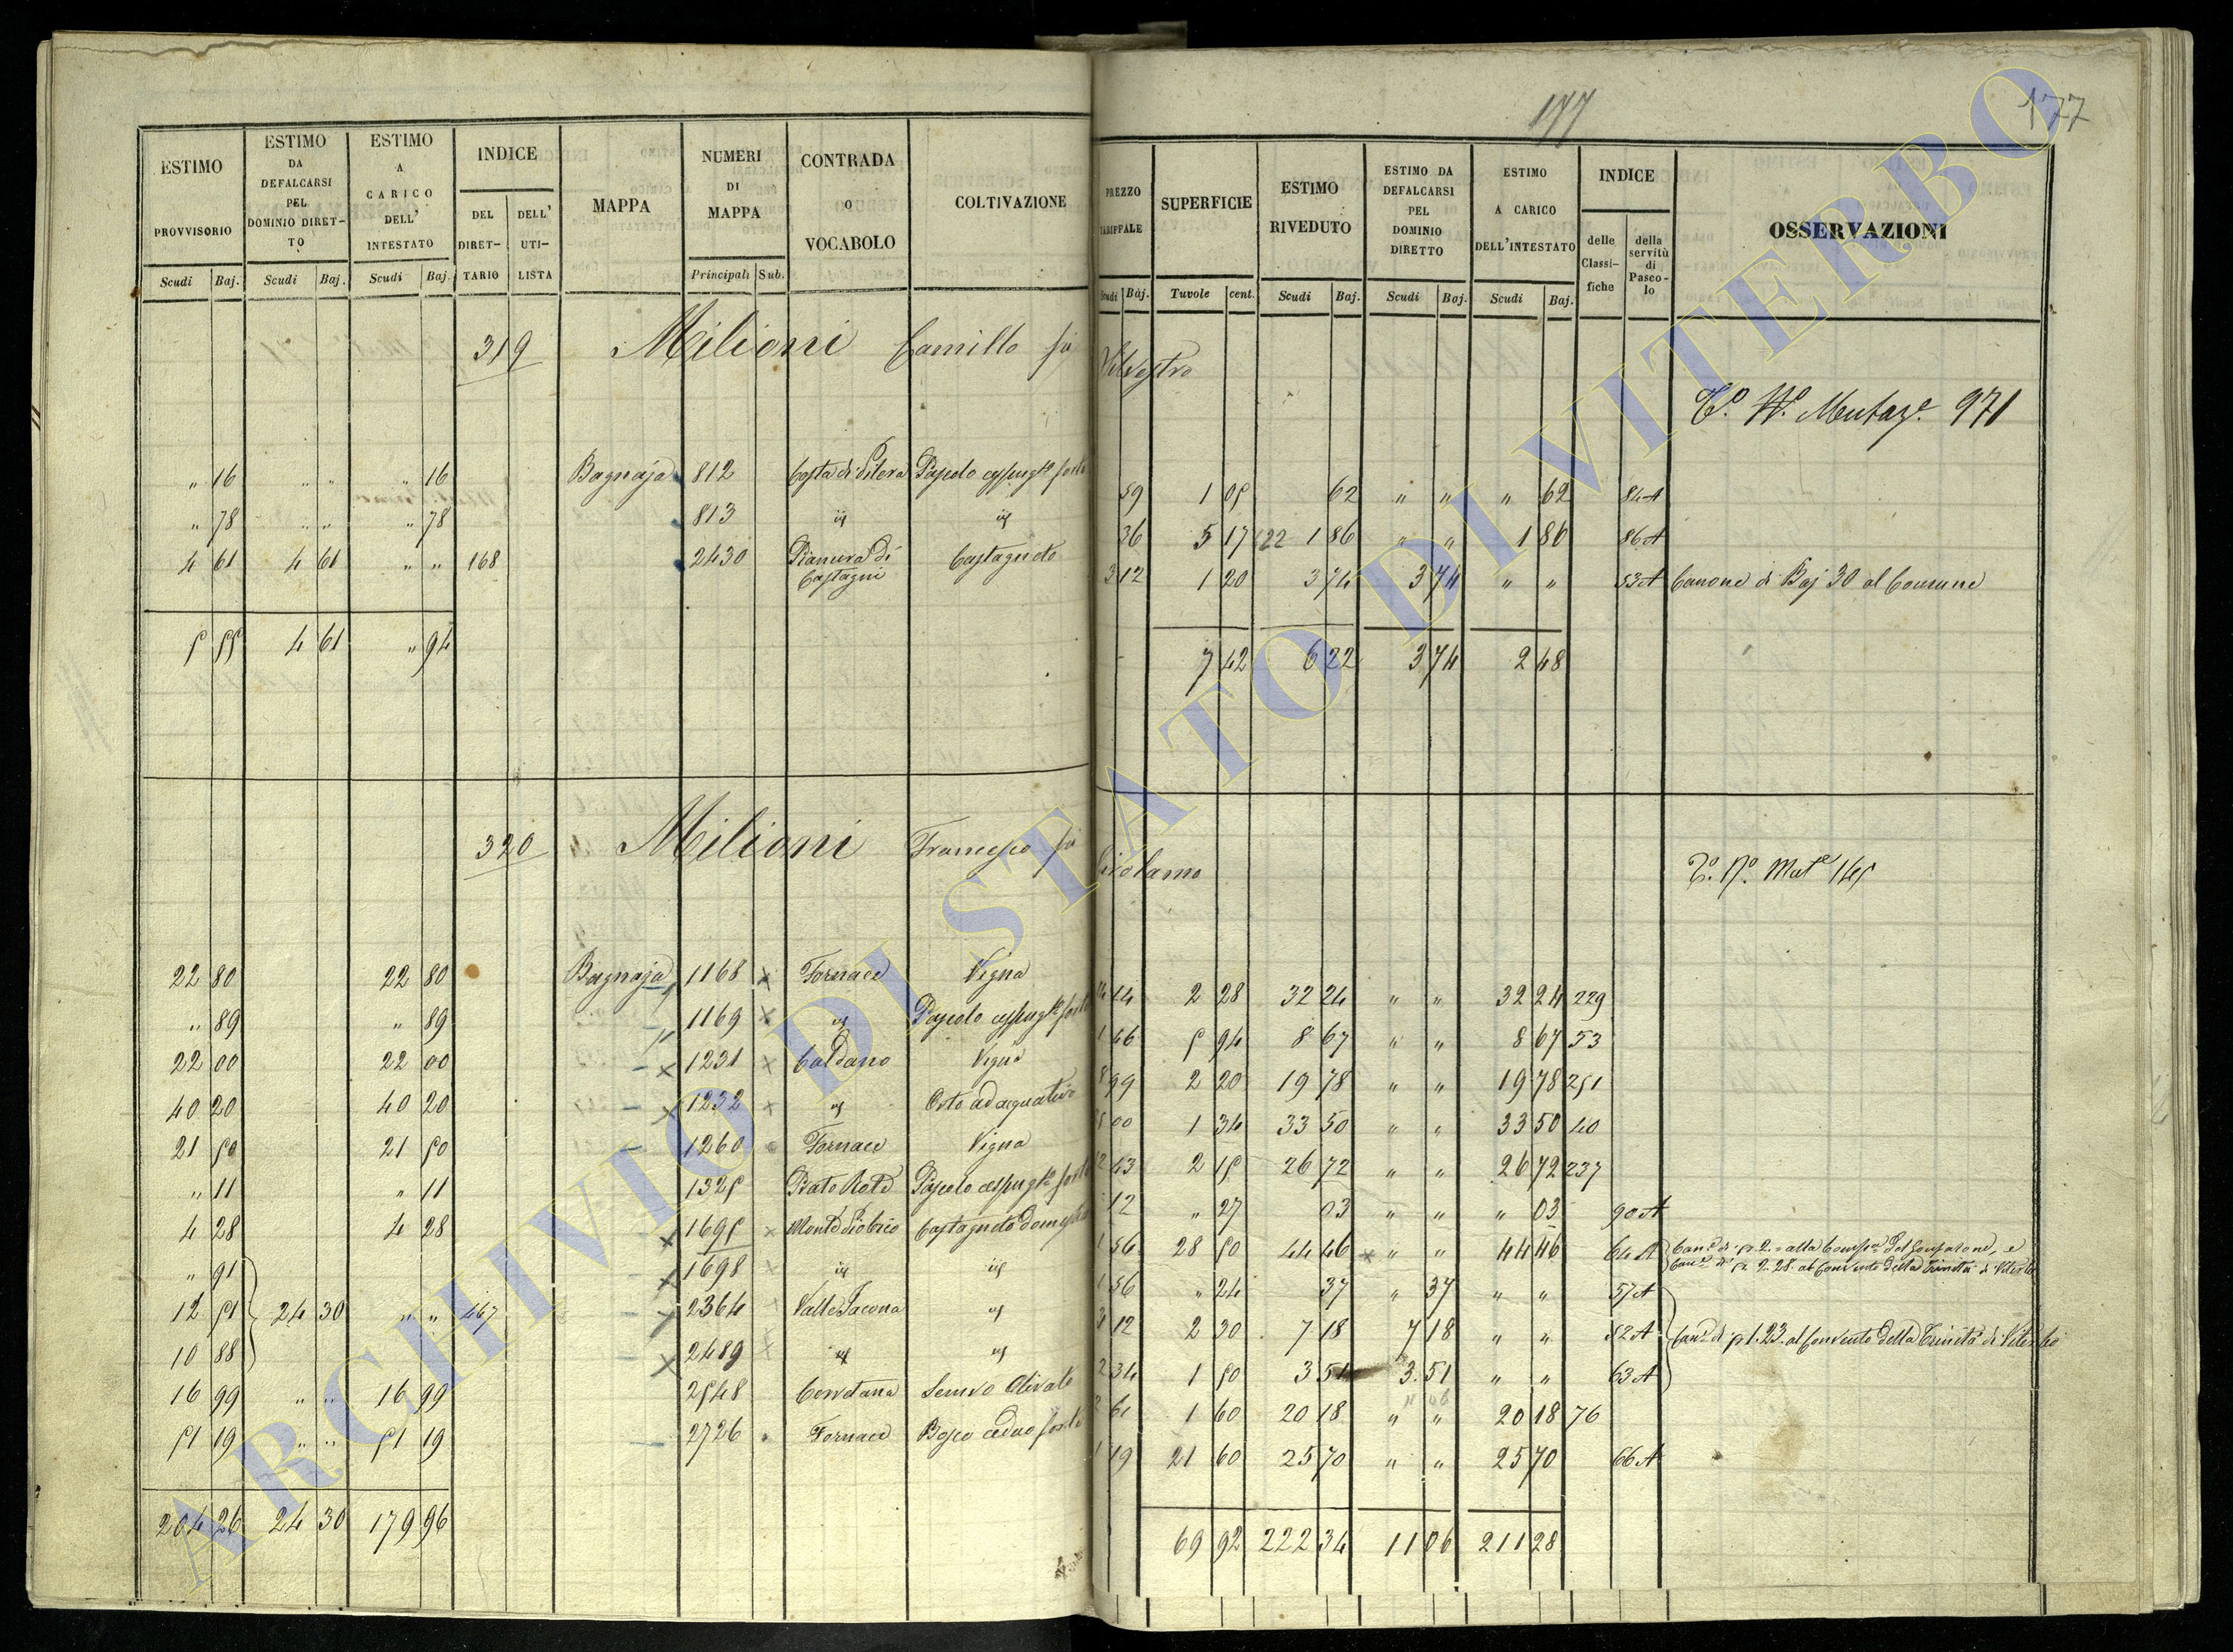 177
177
ESTIMO PROVVISORIO Scudi Baj.
ESTIMO DA DEFALCARSI PEL DOMINIO DIRETTO Scudi Baj.
ESTIMO A CARICO DELL' INTESTATO Scudi Baj.
INDICE DEL DIRETTARIO DELL' UTILISTA
MAPPA
NUMERI DI MAPPA Principali Sub.
CONTRADA O VOCABOLO
COLTIVAZIONE
PREZZO TARIFFALE Scudi Baj.
SUPERFICIE Tavole cent.
ESTIMO RIVEDUTO Scudi Baj.
ESTIMO DA DEFALCARSI PEL DOMINIO DIRETTO Scudi Baj.
ESTIMO A CARICO DELL'INTESTATO Scudi Baj.
INDICE delle Classifiche della servitù di Pascolo
OSSERVAZIONI
319 Milioni Camillo fù Silvestro
971
" 16 " " " 16 Bagnaja 812 Costa di Pilera Pascolo cespugto forte 59 1 05 62 " " " 62 84A
" 78 " " " 78 813 id id 36 5 17 1 86 " " 1 86 86A
4 61 4 61 " " 168 2430 Pianura di Castagni Castagneto 3 12 1 20 3 74 3 74 " " 53A Canone di Baj 30 al Comune
5 55 4 61 " 94 7 42 6 22 3 74 2 48
320 Milioni Francesco fù Girolamo
Mat 145
22 80 22 80 Bagnaja 1168 Fornace Vigna 14 14 2 28 32 24 " " 32 24 229
" 89 " 89 1169 id Pascolo cespugto forte 1 46 5 94 8 67 " " 8 67 53
22 00 22 00 1231 Caldano Vigna 8 99 2 20 19 78 " " 19 78 251
40 20 40 20 1232 id Orto adacquativo 00 1 34 33 50 " " 33 50 40
21 50 21 50 1260 Fornace Vigna 12 43 2 15 26 72 " " 26 72 237
" 11 " 11 1325 Prato Rotd Pascolo cespugto forte 12 " 27 03 " " " 03 90A
4 28 4 28 1695 Monte Castagneto Domestico 1 56 28 50 44 46 " " 44 46 64A
" 91 1698 id id 1 56 " 24 37 " 37 " " 57A
12 51 24 30 " " 467 2364 Valle Jacona id 3 12 2 30 7 18 7 18 " " 52A al Convento della Trinità di Viterbo
10 88 2489 id id 2 34 1 50 3 51 3.51 " " 63A
16 99 " " 16 99 2548 Semvo Olivato 61 1 60 20 18 " " 20 18 76
51 19 " " 51 19 2726 Fornace Bosco ceduo forte 1 19 21 60 25 70 " " 25 70 66A
204 26 24 30 179 96 69 92 222 34 11 06 211 28
ARCHIVIO DI STATO DI VITERBO